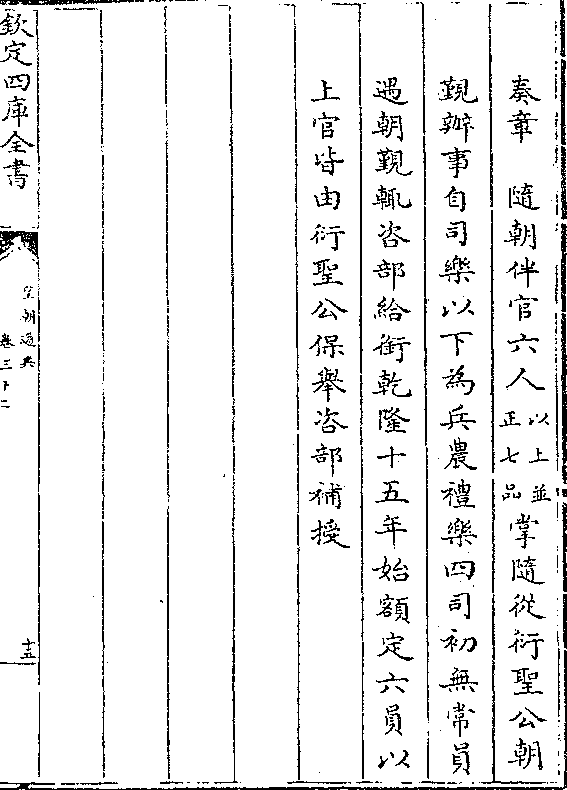 奏章　隨朝伴官六人以上並正七品掌隨從衍聖公朝
覲辦事自司樂以下為兵農禮樂四司初無常員
遇朝覲輒咨部給銜乾隆十五年始額定六員以
上官皆由衍聖公保舉咨部補授
欽定四庫全書
皇朝通典
卷三十二
十五